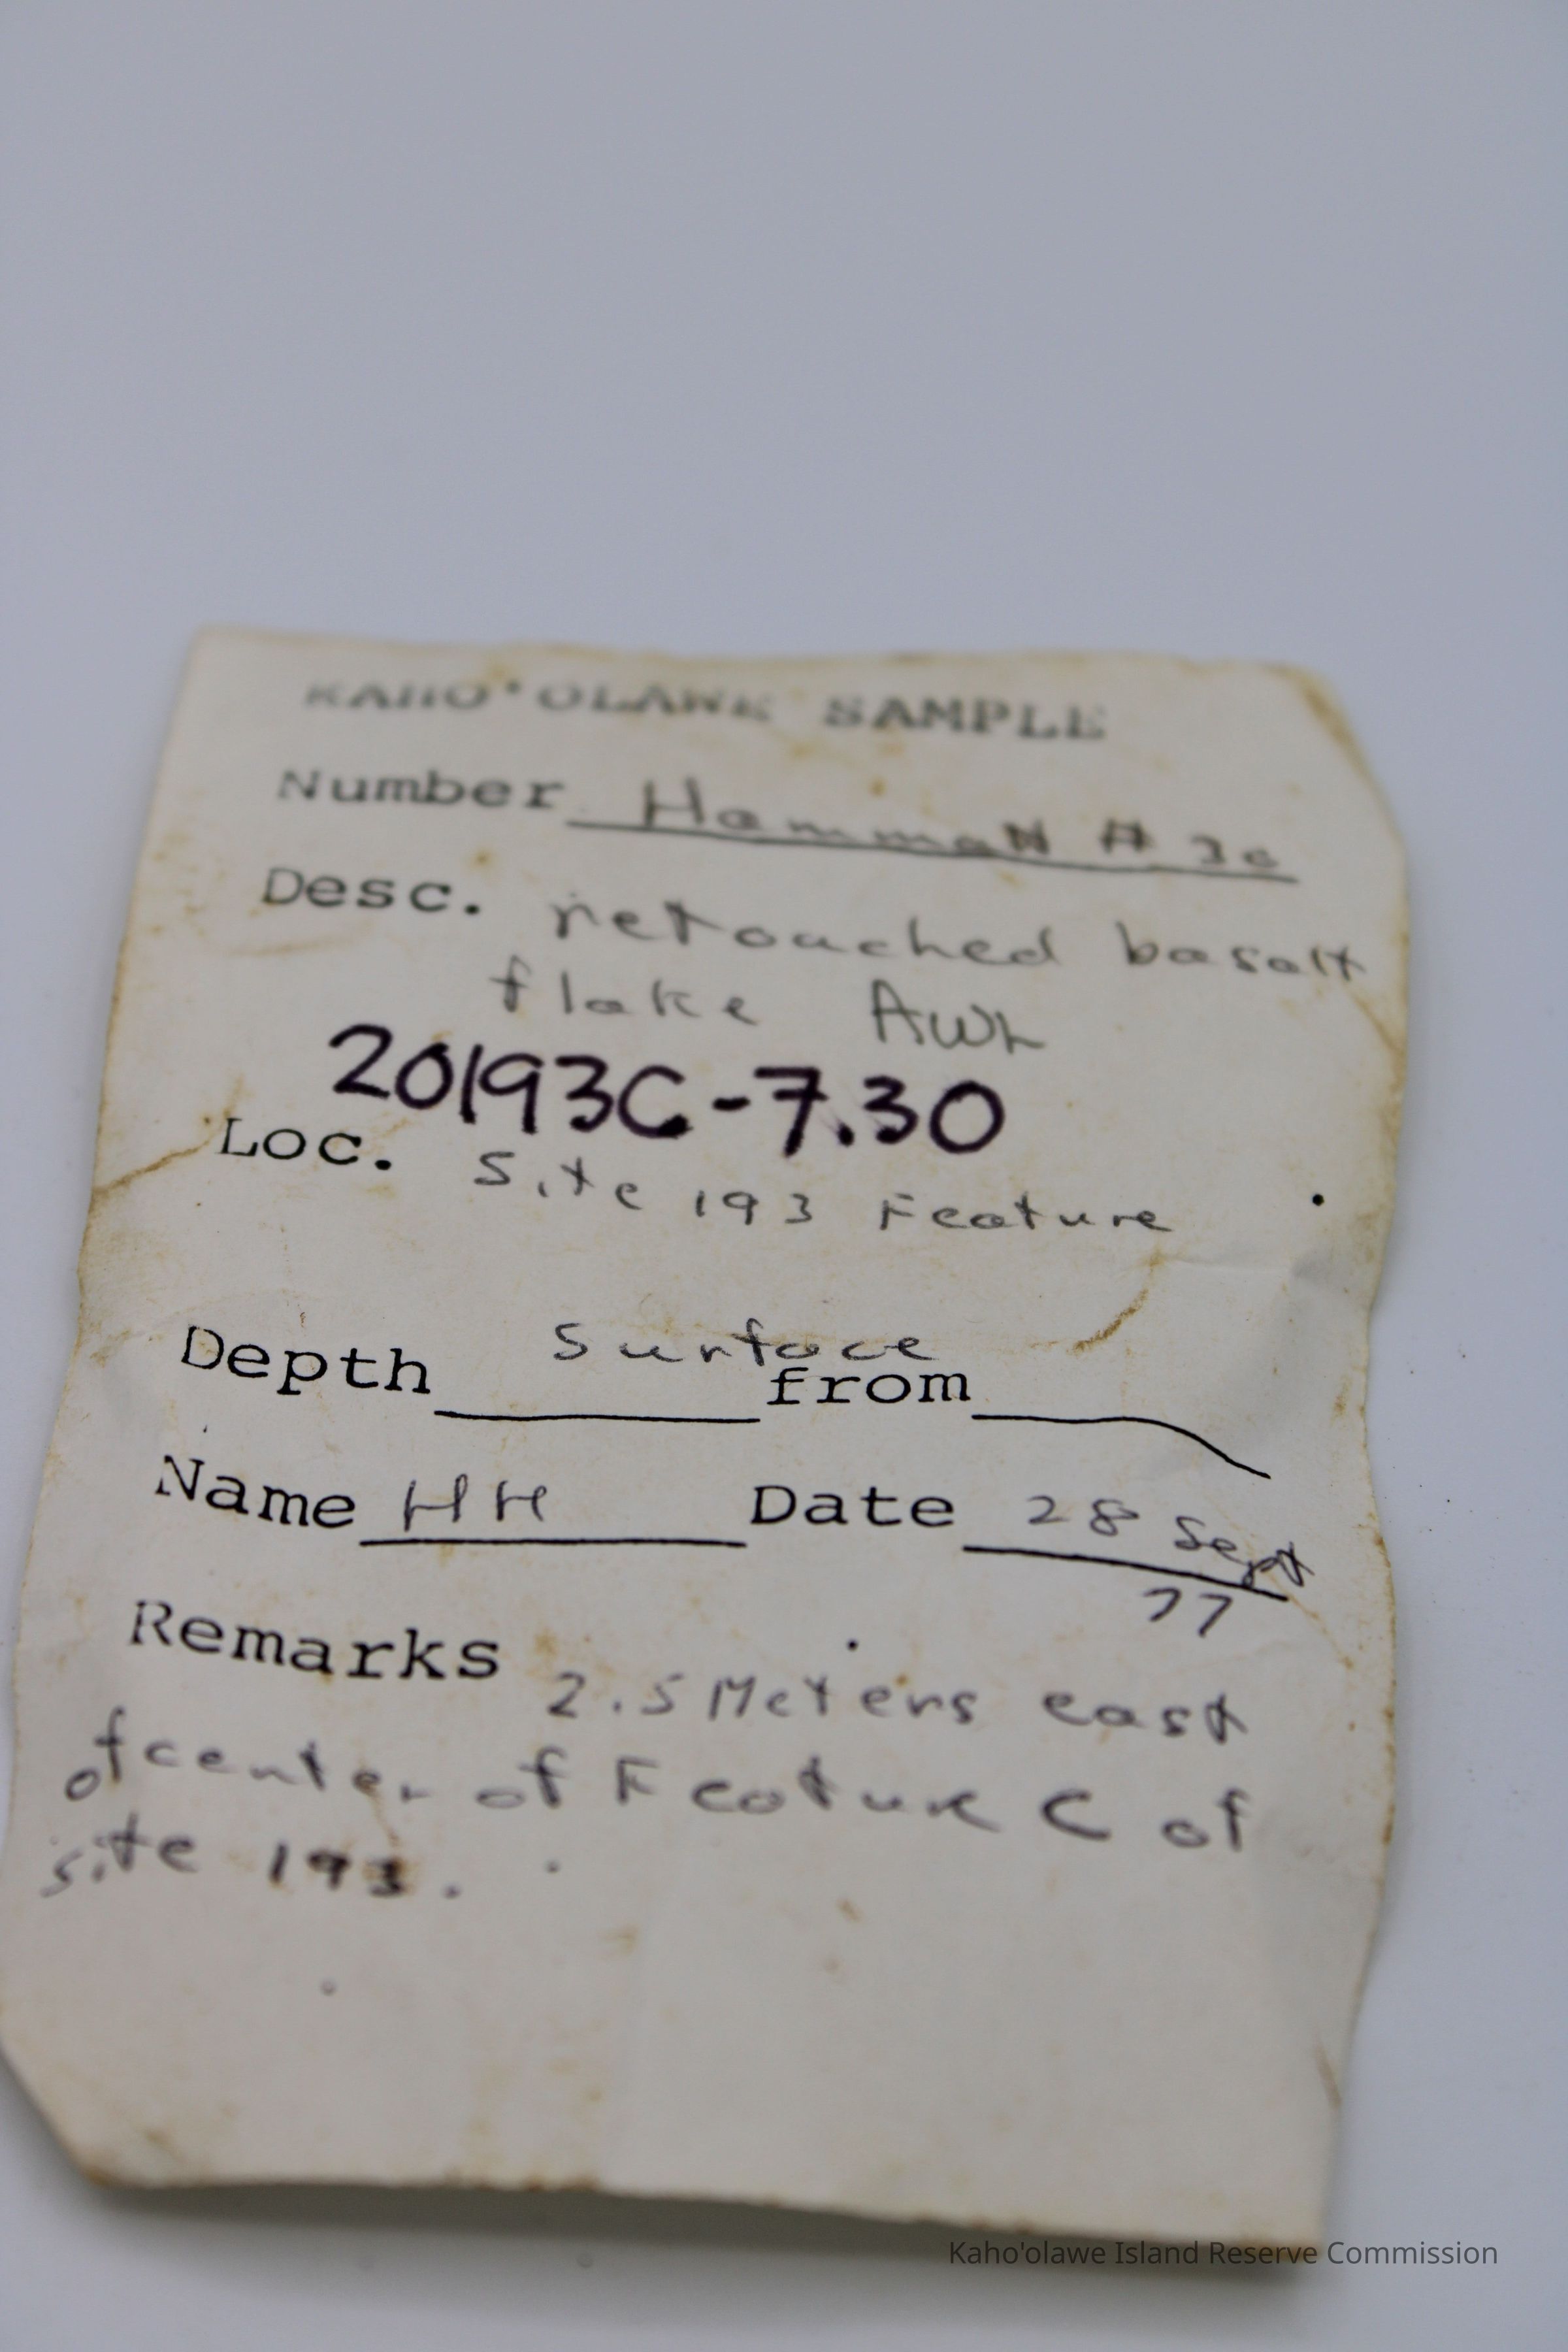 KAHO'OLAWE SAMPLE
Number HammaN # 30
Desc. retouched basalt
flake AWL
20193C-7.30
Loc. Site 193 Feature
Depth Surface from
Name HH Date 28 Sept
77
Remarks 2.5 Meters east
of center of Feature C of
site 193.
Kaho'olawe Island Reserve Commission